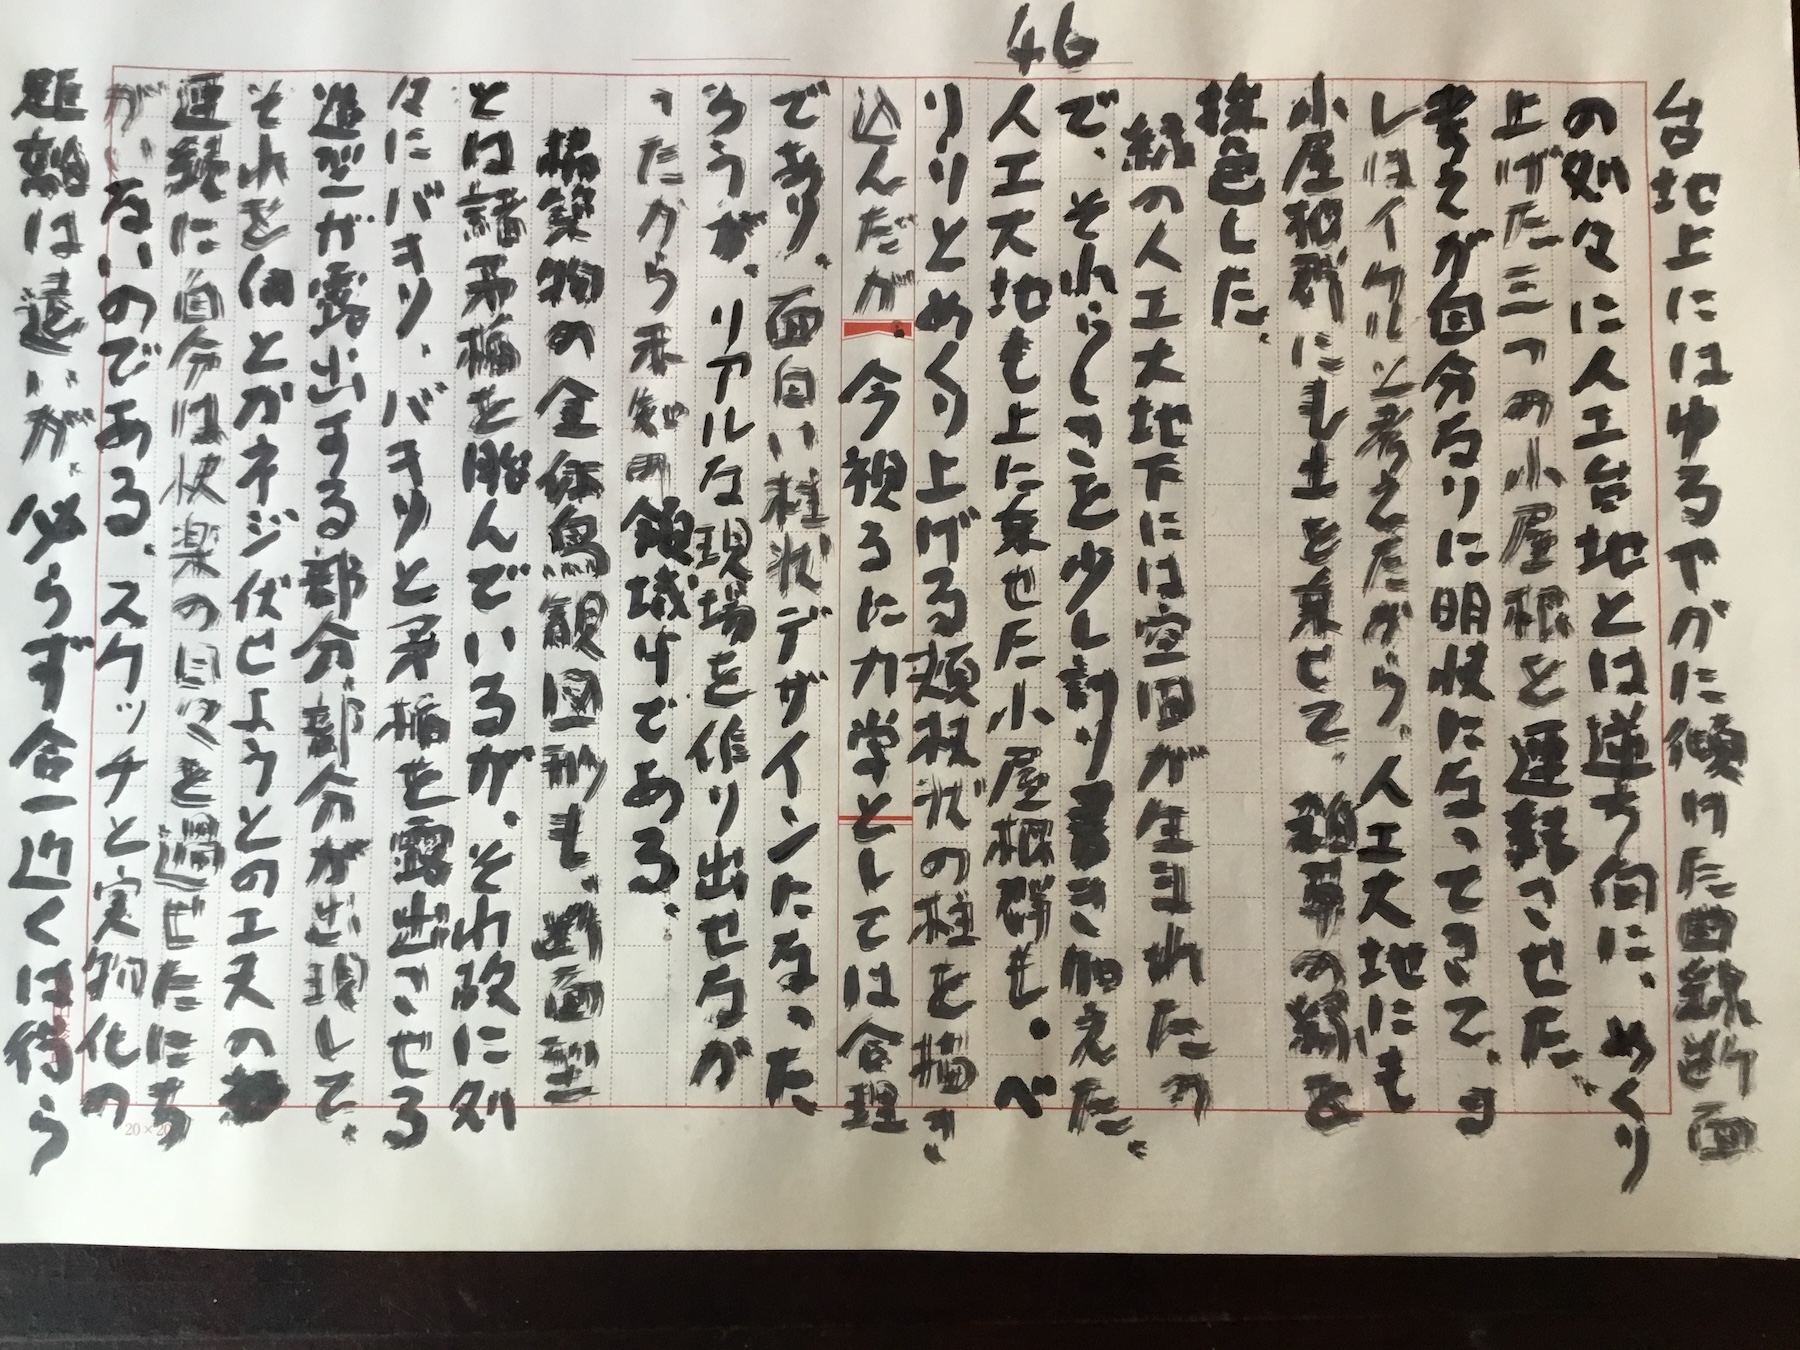 46
台地上にはゆるやかに傾けた曲線断面
の処々に人工台地とは逆方向に、めくり
上げた三つの小屋根を連続させた。
考えが自分なりに明快になってきて、す
しはイケルと考えたから、人工大地にも
小屋根群にも土を乗せて、雑草の緑を
採色した。
緑の人工大地下には空洞が生まれたの
で、それらしきを少し計り書き加えた。
人工大地も上に乗せた小屋根群も。ベ
リリとめくり上げる頬杖状の柱を描き
込んだが。今視るに力学としては合理
であり、面白い柱状デザインになった
ろうが、リアルな現場を作り出せなが
ったから未知の領域けである。
構築物の全体鳥観図形も、断面型
とは諸矛楯を胎んでいるが、それ故に処
々にバキリ、バキリと矛楯を露出させる
進がーが露出する部分、部分が出現して、
それを何とかネジ伏せようとのエヌの
連続に自分は快楽の日々を過せたにち
が、ないのである。スケッチと実物化の
距離は遠いが、必らず合一近くは待ら
20×20